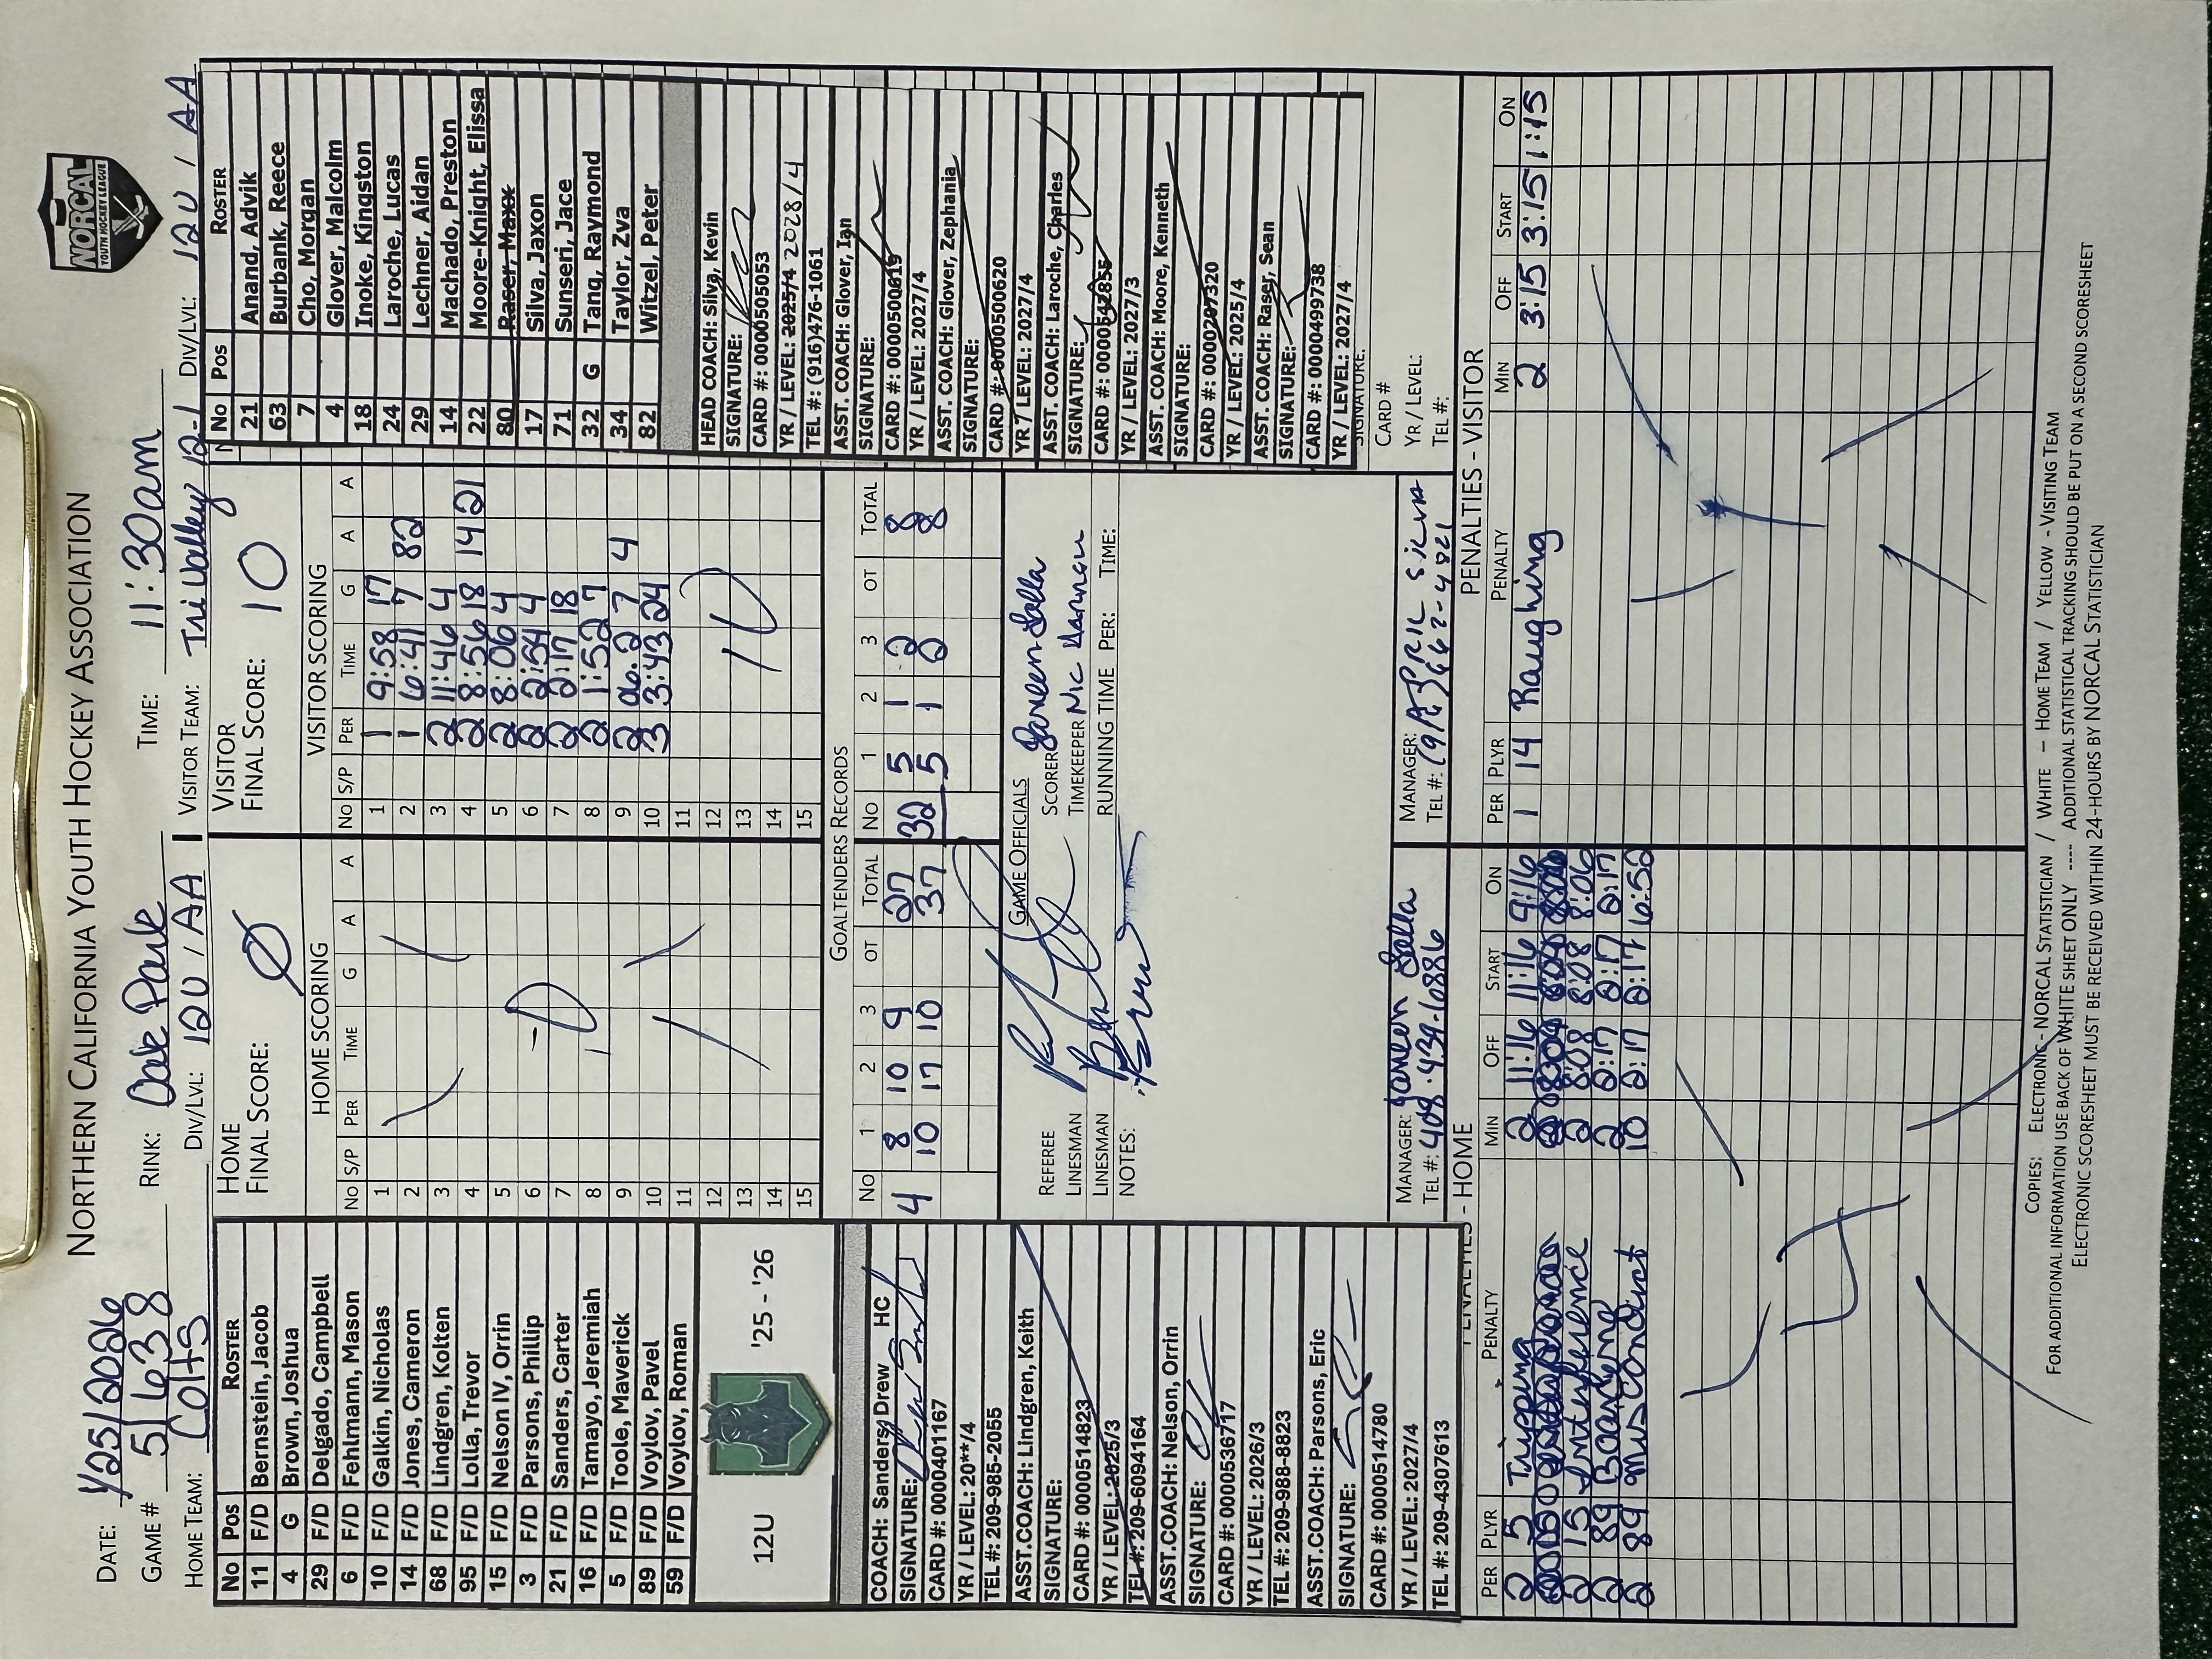 NORTHERN CALIFORNIA YOUTH HOCKEY ASSOCIATION
NORCAL
YOUTH HOCKEY LEAGUE
DATE: 1/25/2026 RINK: Oak Park TIME: 11:30am
GAME # 51638
HOME TEAM: Colts DIV/LVL: 12U / AA VISITOR TEAM: Tri Valley 12-1 DIV/LVL: 12U / AA
No Pos ROSTER
11 F/D Bernstein, Jacob
4 G Brown, Joshua
29 F/D Delgado, Campbell
6 F/D Fehlmann, Mason
10 F/D Galkin, Nicholas
14 F/D Jones, Cameron
68 F/D Lindgren, Kolten
95 F/D Lolla, Trevor
15 F/D Nelson IV, Orrin
3 F/D Parsons, Phillip
21 F/D Sanders, Carter
16 F/D Tamayo, Jeremiah
5 F/D Toole, Maverick
89 F/D Voylov, Pavel
59 F/D Voylov, Roman
12U '25 - '26
COACH: Sanders, Drew HC
SIGNATURE:
CARD #: 0000401167
YR / LEVEL: 20**/4
TEL #: 209-985-2055
ASST.COACH: Lindgren, Keith
SIGNATURE:
CARD #: 0000514823
YR / LEVEL: 2025/3
TEL #: 209-6094164
ASST.COACH: Nelson, Orrin
SIGNATURE:
CARD #: 0000536717
YR / LEVEL: 2026/3
TEL #: 209-988-8823
ASST.COACH: Parsons, Eric
SIGNATURE:
CARD #: 0000514780
YR / LEVEL: 2027/4
TEL #: 209-4307613
HOME
FINAL SCORE: Ø
HOME SCORING
No S/P PER TIME G A A
1
2
3
4
5
6
7
8
9
10
11
12
13
14
15
VISITOR
FINAL SCORE: 10
VISITOR SCORING
No S/P PER TIME G A A
1 1 9:58 17
2 1 6:41 7 82
3 2 11:46 4
4 2 8:56 18 14 21
5 2 8:06 4
6 2 2:54 4
7 2 2:17 18
8 2 1:52 7
9 2 06.2 7 4
10 3 3:43 24
11
12
13
14
15
10
GOALTENDERS RECORDS
No 1 2 3 OT TOTAL No 1 2 3 OT TOTAL
4 8 10 9 27 32 5 1 2 8
10 17 10 37 5 1 2 8
GAME OFFICIALS
REFEREE
LINESMAN
LINESMAN
NOTES:
SCORER Janeen Lolla
TIMEKEEPER Nic
RUNNING TIME PER: TIME:
MANAGER: Janeen Lolla
TEL #: 408-439-6886
MANAGER: April Silva
No Pos ROSTER
21 Anand, Advik
63 Burbank, Reece
7 Cho, Morgan
4 Glover, Malcolm
18 Inoke, Kingston
24 Laroche, Lucas
29 Lechner, Aidan
14 Machado, Preston
22 Moore-Knight, Elissa
80 Raser, Maxx
17 Silva, Jaxon
71 Sunseri, Jace
32 G Tang, Raymond
34 Taylor, Zva
82 Witzel, Peter
HEAD COACH: Silva, Kevin
SIGNATURE:
CARD #: 0000505053
YR / LEVEL: 2025/4 2028/4
TEL #: (916)476-1061
ASST. COACH: Glover, Ian
SIGNATURE:
CARD #: 0000500619
YR / LEVEL: 2027/4
ASST. COACH: Glover, Zephania
SIGNATURE:
CARD #: 0000500620
YR / LEVEL: 2027/4
ASST. COACH: Laroche, Charles
SIGNATURE:
CARD #: 0000542855
YR / LEVEL: 2027/3
ASST. COACH: Moore, Kenneth
SIGNATURE:
CARD #: 0000207320
YR / LEVEL: 2025/4
ASST. COACH: Raser, Sean
SIGNATURE:
CARD #: 0000499738
YR / LEVEL: 2027/4
SIGNATURE:
CARD #
YR / LEVEL:
TEL #:
PENALTIES - HOME
PER PLYR PENALTY MIN OFF START ON
2 5 Tripping 2 11:16 11:16 9:16
2 15 Interference 2 8:08 8:08 8:06
2 89 Boarding 2 2:17 2:17 0:17
2 89 Misconduct 10 2:17 2:17 6:52
PENALTIES - VISITOR
PER PLYR PENALTY MIN OFF START ON
1 14 Roughing 2 3:15 3:15 1:15
COPIES: ELECTRONIC - NORCAL STATISTICIAN / WHITE – HOME TEAM / YELLOW - VISITING TEAM
FOR ADDITIONAL INFORMATION USE BACK OF WHITE SHEET ONLY ---- ADDITIONAL STATISTICAL TRACKING SHOULD BE PUT ON A SECOND SCORESHEET
ELECTRONIC SCORESHEET MUST BE RECEIVED WITHIN 24-HOURS BY NORCAL STATISTICIAN